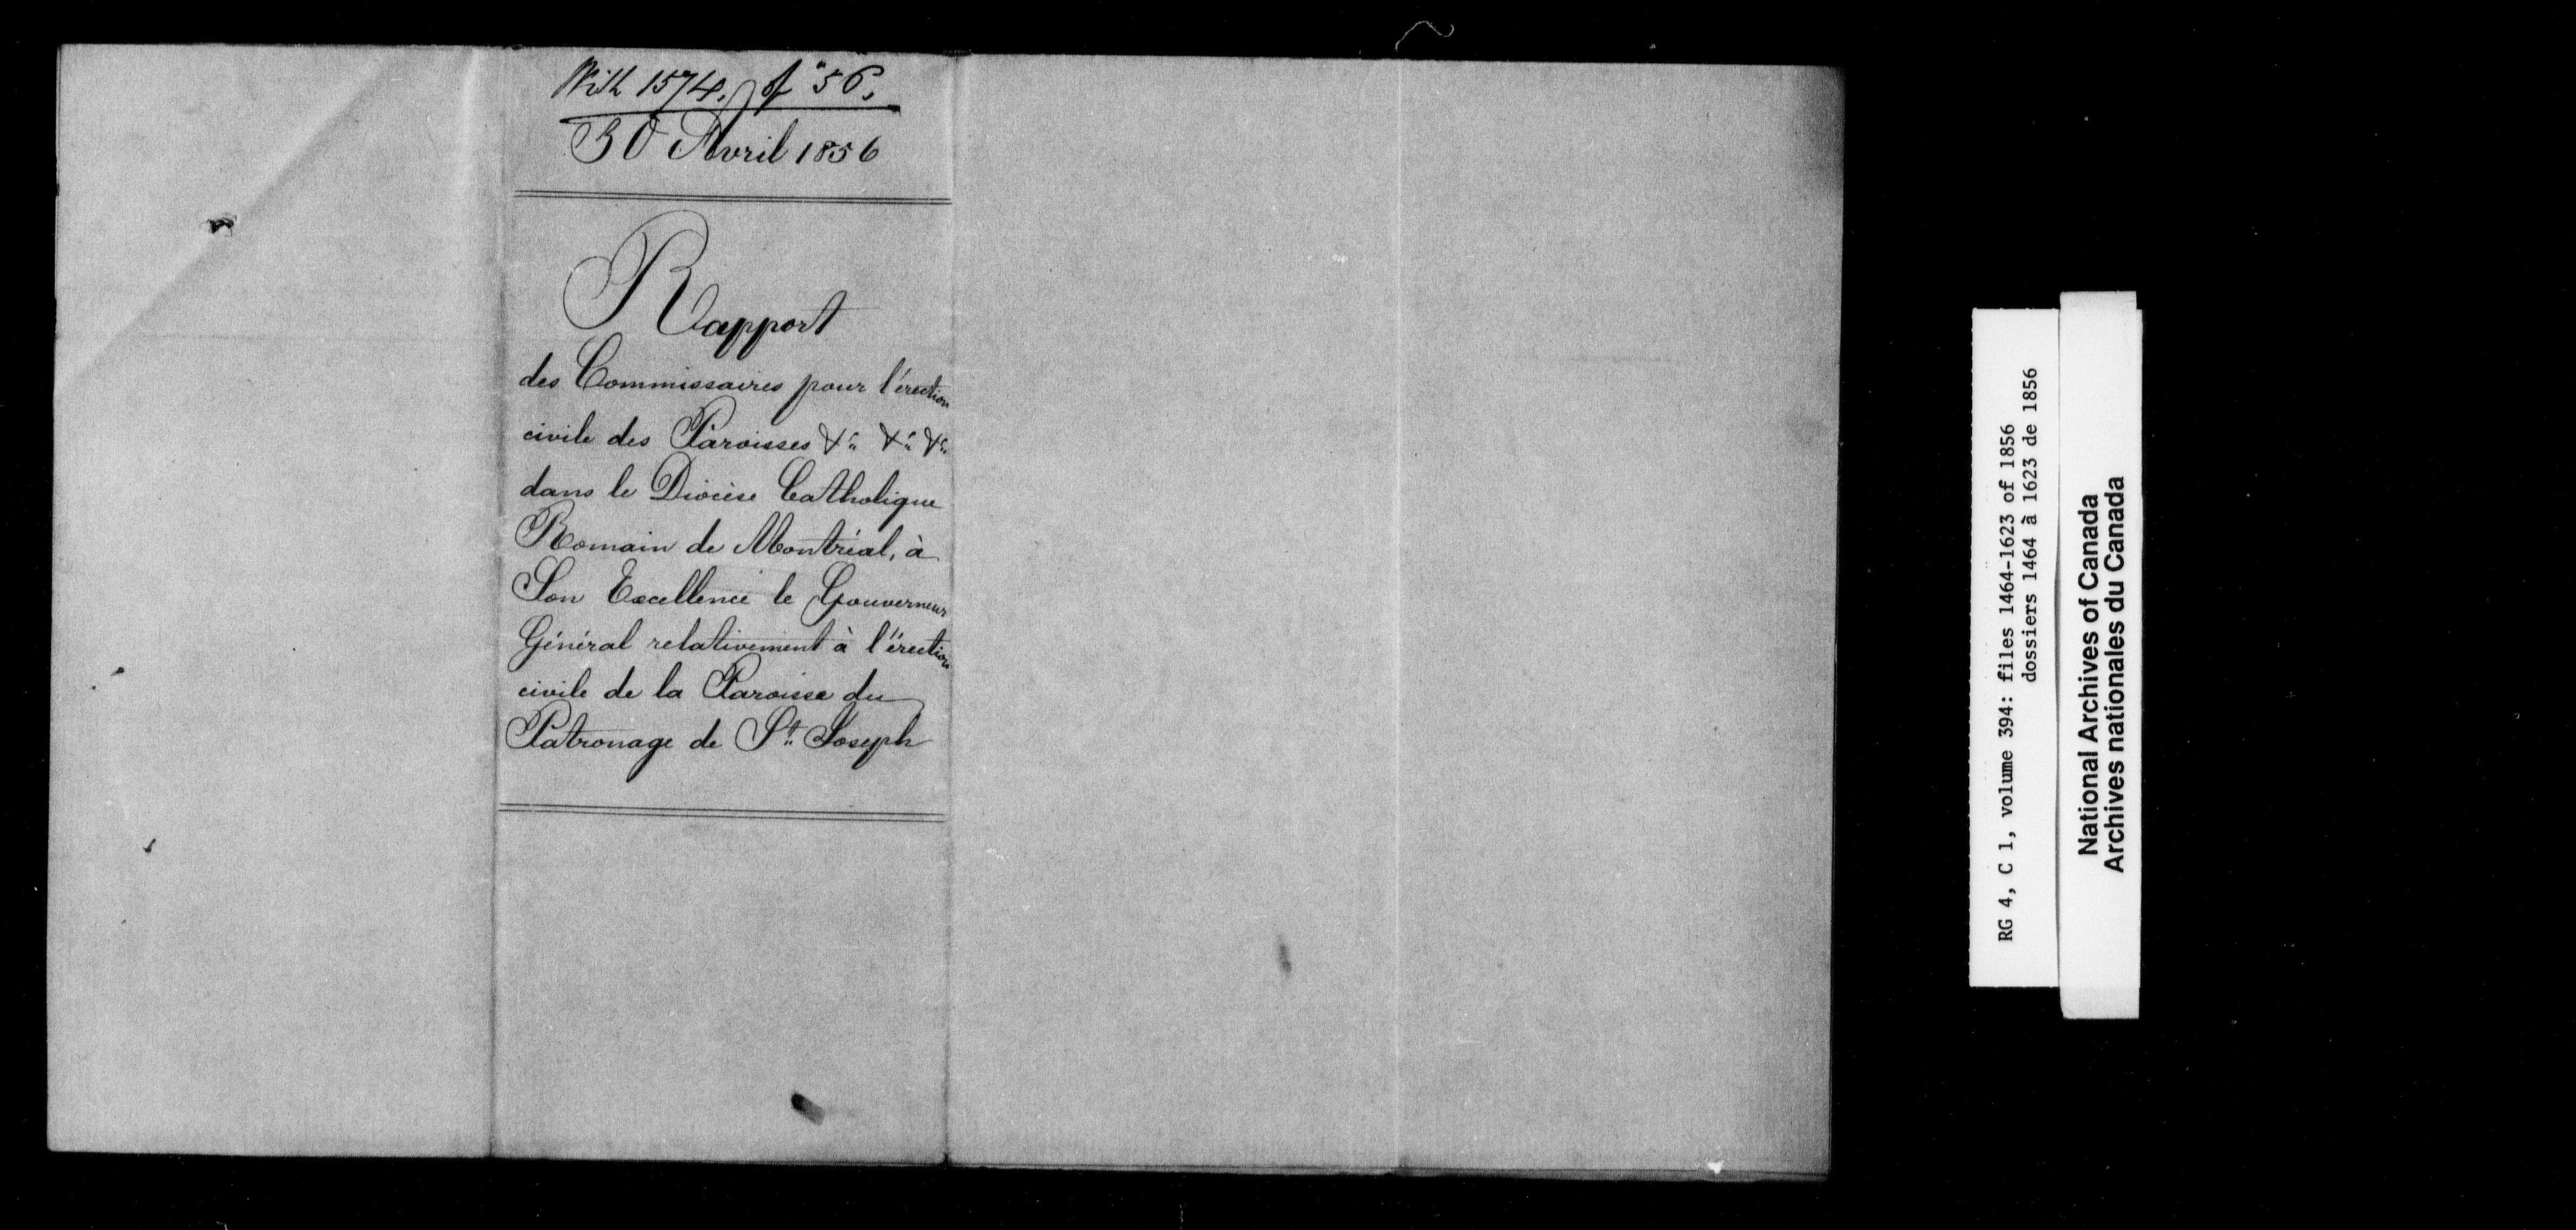 With 1574, of "56,
30 Avril 1856
Rapport
des Commissaires pour l'érection
civile des Paroisses &c &c &c
dans le Diocèse Catholique
Romain de Montréal, à
Son Excellence le Gouverneur
Général relativement à l'érection
civile de la Paroisse du
Patronage de St. Joseph
RG 4, C 1, volume 394: files 1464-1623 of 1856
dossiers 1464 à 1623 de 1856
National Archives of Canada
Archives nationales du Canada